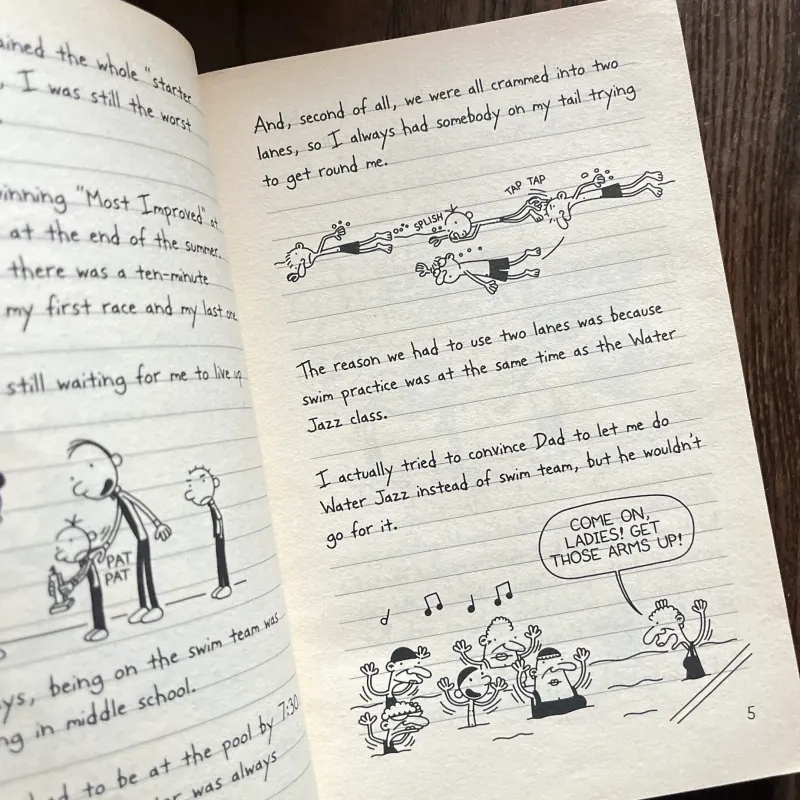 ained the whole "starter
, I was still the worst
inning "Most Improved" at
at the end of the summer.
there was a ten-minute
my first race and my last one.
still waiting for me to live up
PAT
PAT
ys, being on the swim team was
ng in middle school.
to be at the pool by 7:30
was always
And, second of all, we were all crammed into two
lanes, so I always had somebody on my tail trying
to get round me.
SPLISH
TAP TAP
The reason we had to use two lanes was because
swim practice was at the same time as the Water
Jazz class.
I actually tried to convince Dad to let me do
Water Jazz instead of swim team, but he wouldn't
go for it.
COME ON,
LADIES! GET
THOSE ARMS UP!
5